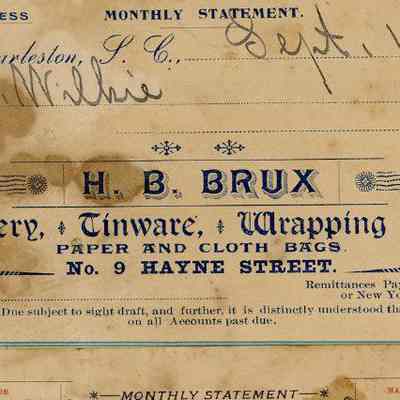 ESS MONTHLY STATEMENT.
arleston, S. C., Sept. 1
Wilkie
H. B. BRUX
ery, Tinware, Wrapping
PAPER AND CLOTH BAGS.
No. 9 HAYNE STREET.
Remittances Pay
or New Yo
Due subject to sight draft, and further, it is distinctly understood tha
on all Accounts past due.
MONTHLY STATEMENT